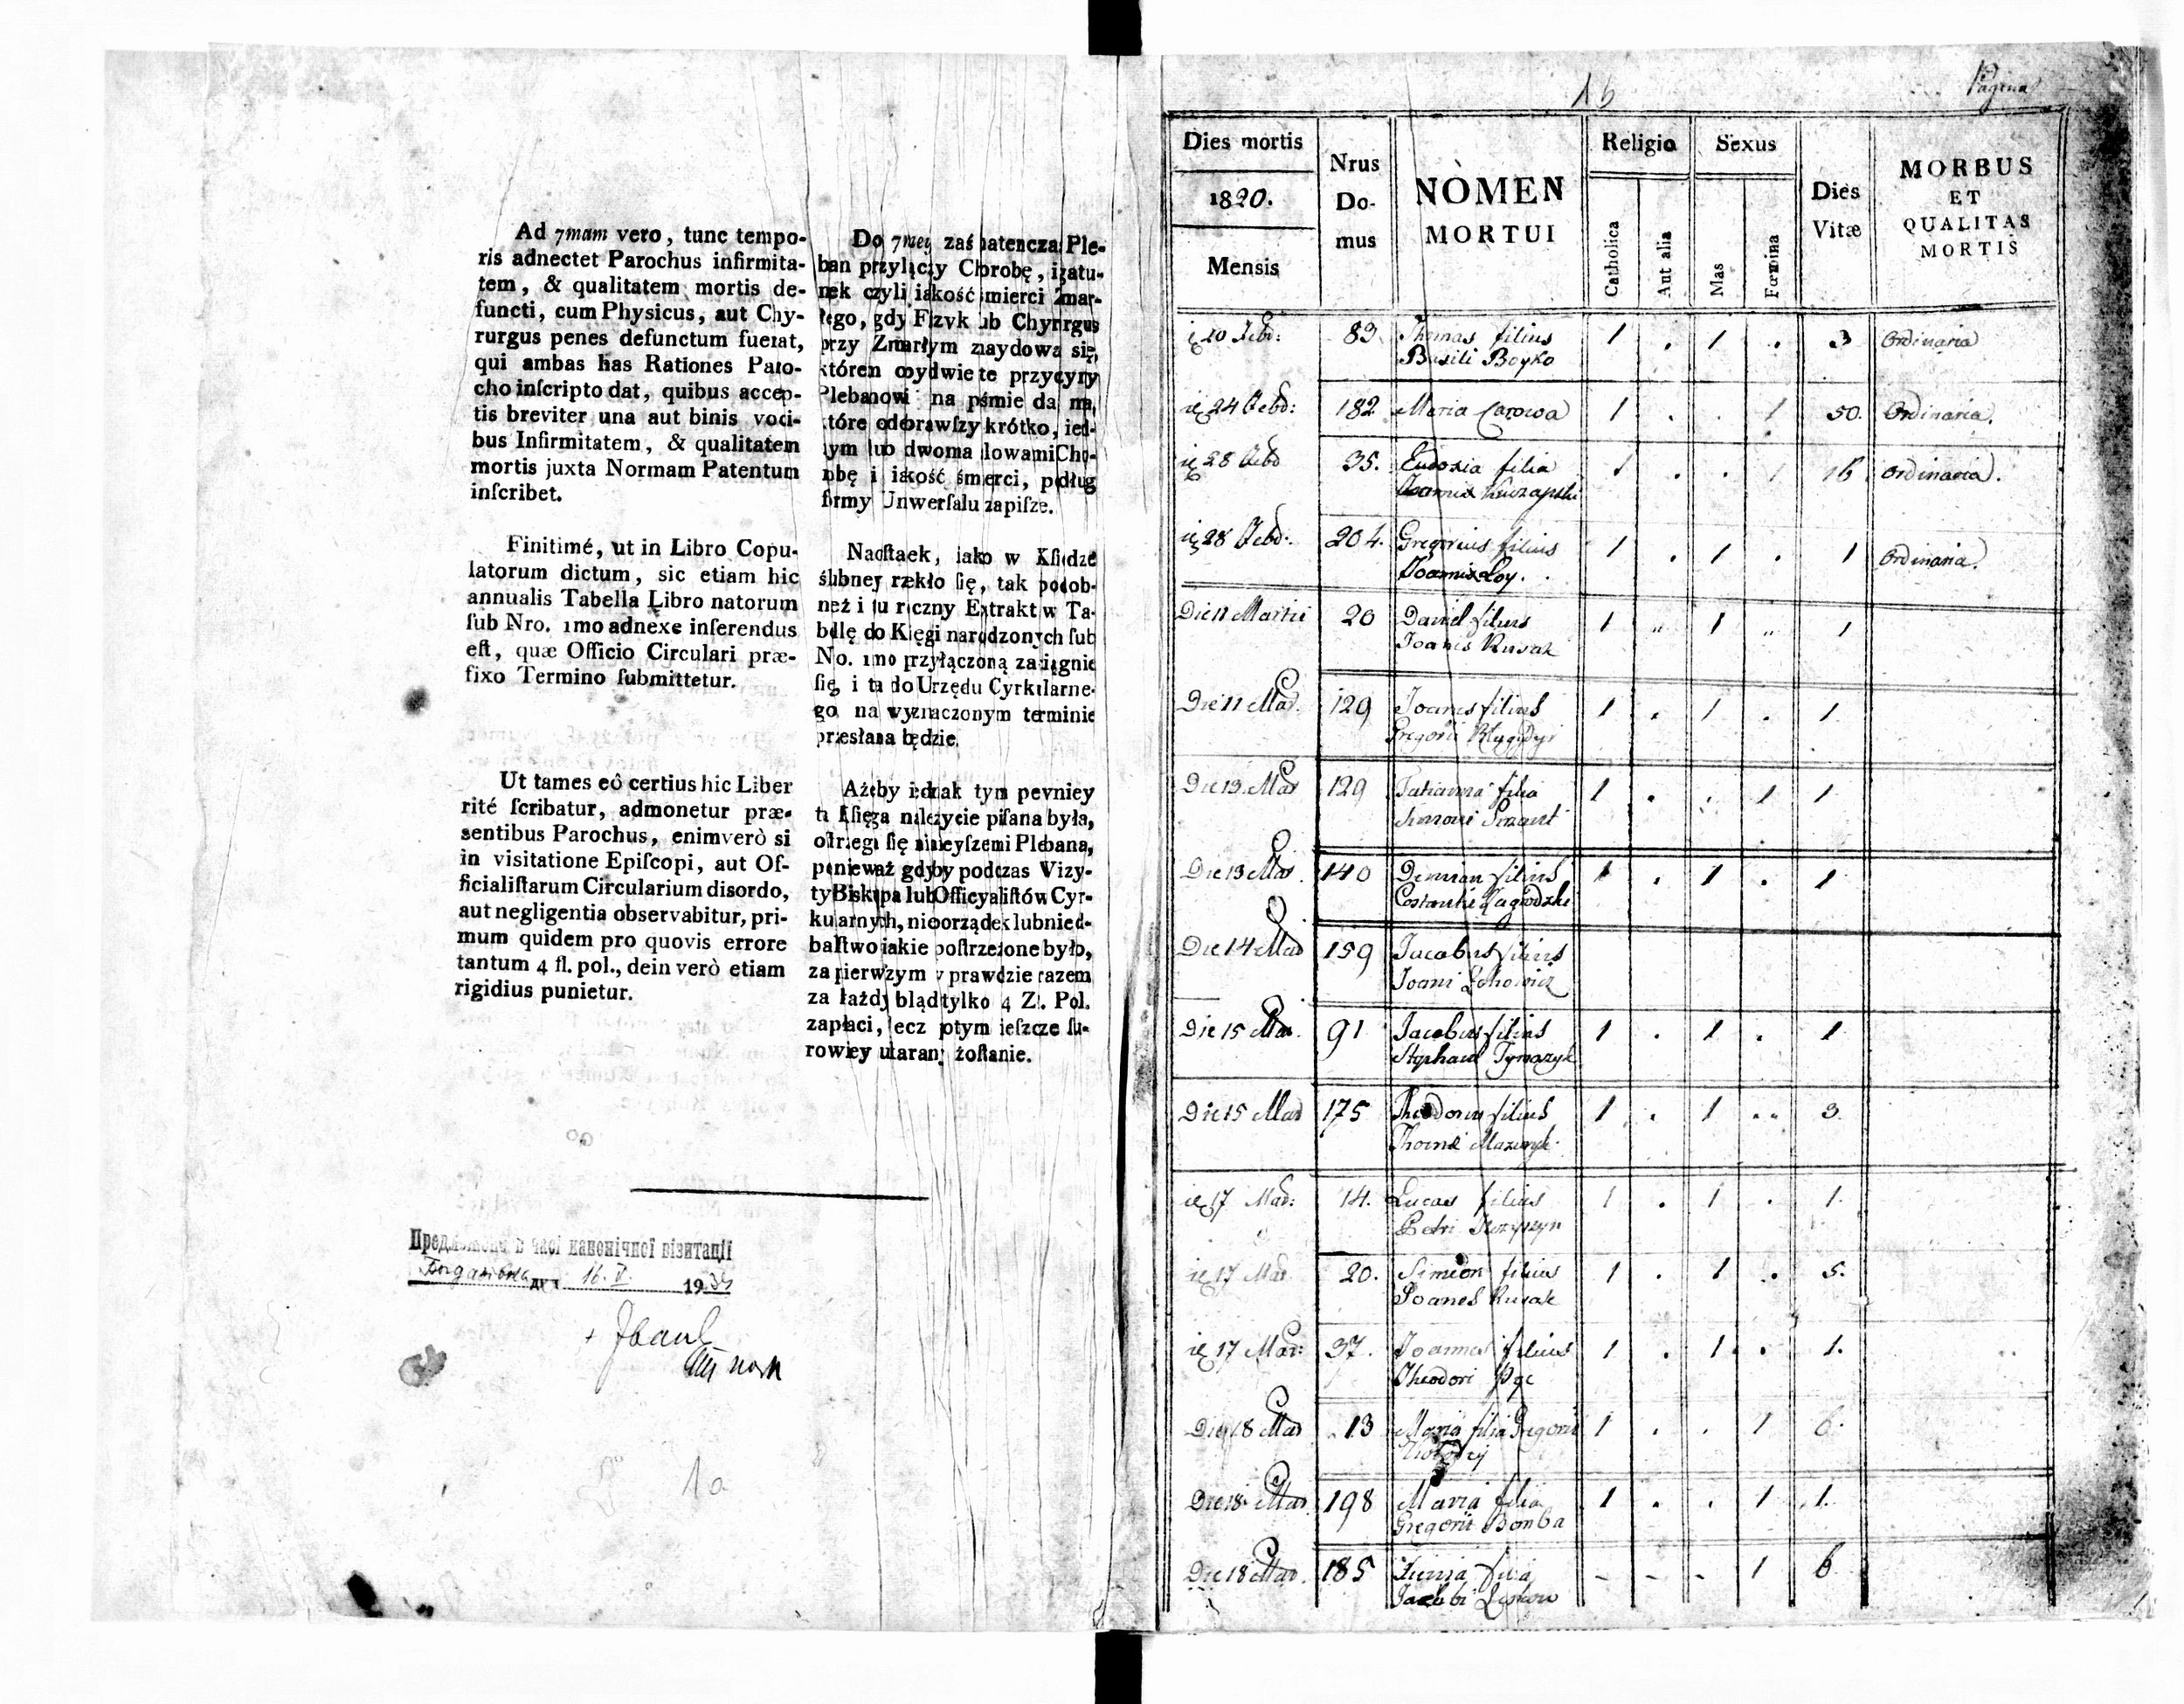 Ad 7mam vero, tunc tempo-
ris adnectet Parochus infirmita-
tem, & qualitatem mortis de-
functi, cum Physicus, aut Chy-
rurgus penes defunctum fuerat,
qui ambas has Rationes Paro-
cho inſcripto dat, quibus accep-
tis breviter una aut binis voci-
bus Infirmitatem, & qualitatem
mortis juxta Normam Patentum
inſcribet.
Finitimé, ut in Libro Copu-
latorum dictum, sic etiam hic
annualis Tabella Libro natorum
ſub Nro. 1mo adnexe inſerendus
eſt, quæ Officio Circulari præ-
fixo Termino ſubmittetur.
Ut tames eô certius hic Liber
rité ſcribatur, admonetur præ-
sentibus Parochus, enimverò si
in visitatione Epiſcopi, aut Of-
ficialiſtarum Circularium disordo,
aut negligentia observabitur, pri-
mum quidem pro quovis errore
tantum 4 fl. pol., dein verò etiam
rigidius punietur.
Do 7mey zaś Ple-
ban przyłączy Chorobę,
czyli iakość śmierci Zmar-
łego, gdy Chyrurgus
przy Zmarłym się,
które przyczyny
Plebanowi na piśmie da ma,
które odebrawſzy krótko, ied-
nym lub dwoma słowami Cho-
robę i iakość śmierci, podług
firmy Unwerſalu zapiſze.
iako w Kſiędze
ślubney rzekło ſię, tak podob-
neż i tu roczny Extrakt w Ta-
belę do Kięgi narodzonych ſub
No. 1mo przyłączoną zaciągnie
ſię, i ta do Urzędu Cyrkularne-
go na wyznaczonym terminie
przesłana będzie.
Ażeby iednak tym pevniey
ta Kſięga należycie piſana była,
oſtrzega ſię ninieyſzemi Plebana,
ponieważ gdyby podczas Vizy-
ty Biskupa lub Officyaliſtów Cyr-
kularnych, nieporządek lub nied-
balſtwo iakie poſtrzeżone było,
za pierwſzym wprawdzie razem
za każdy błąd tylko 4 Zł. Pol.
zapłaci, lecz potym ieſzcze ſu-
rowiey ukarany zoſtanie.
Предложено в часі канонічної візитації
Богданівка дня 16. V. 1934
+ Іван
1a
16
Pagina
Dies mortis
1820.
Mensis
Nrus
Do-
mus
NOMEN
MORTUI
Religio
Catholica
Aut alia
Sexus
Mas
Fœmina
Dies
Vitæ
MORBUS
ET
QUALITAS
MORTIS
20 Febr: 83. Thomas filius 1 . 1 . 3 Ordinaria
Basili Boyko
24 Febr: 182 Maria 1 . . 1 50. Ordinaria.
28 Febr 35. Eudoxia filia 1 . . 1 16 Ordinaria.
Joannis
28 Febr: 204. Gregorius filius 1 . 1 . 1 Ordinaria.
Joannis
Die 11 Martii 20 Daniel filius 1 " 1 " 1
Joanis Rusak
Die 11 Mar. 129 Joanes filius 1 . 1 . 1
Gregorii
Die 13 Mar 129 Tatianna filia 1 . . 1 1
Simoni
Die 13 Mar 140 Demian filius 1 . 1 . 1
Costantii Zagrodzki
Die 14 Mar 159 Jacobus filius
Joani
Die 15 Mar. 91 Jacobus filius 1 . 1 . 1
Stephani Tymczyk
Die 15 Mar 175 Theodorus filius 1 . 1 .. 3.
Thoma
17 Mar: 14. Lucas filius 1 . 1 . 1.
Petri
17 Mar. 20. Simeon filius 1 . 1 . 5.
Joanes Rusak
17 Mar: 37. Joannes filius 1 . 1 . 1.
Theodori
Die 18 Mar 13 Maria filia Gregorii 1 . . 1 6.
Die 18 Mar 198 Maria filia 1 . . 1 1.
Gregorii Bomba
Die 18 Mar. 185 filia - - - 1 6
Jacobi